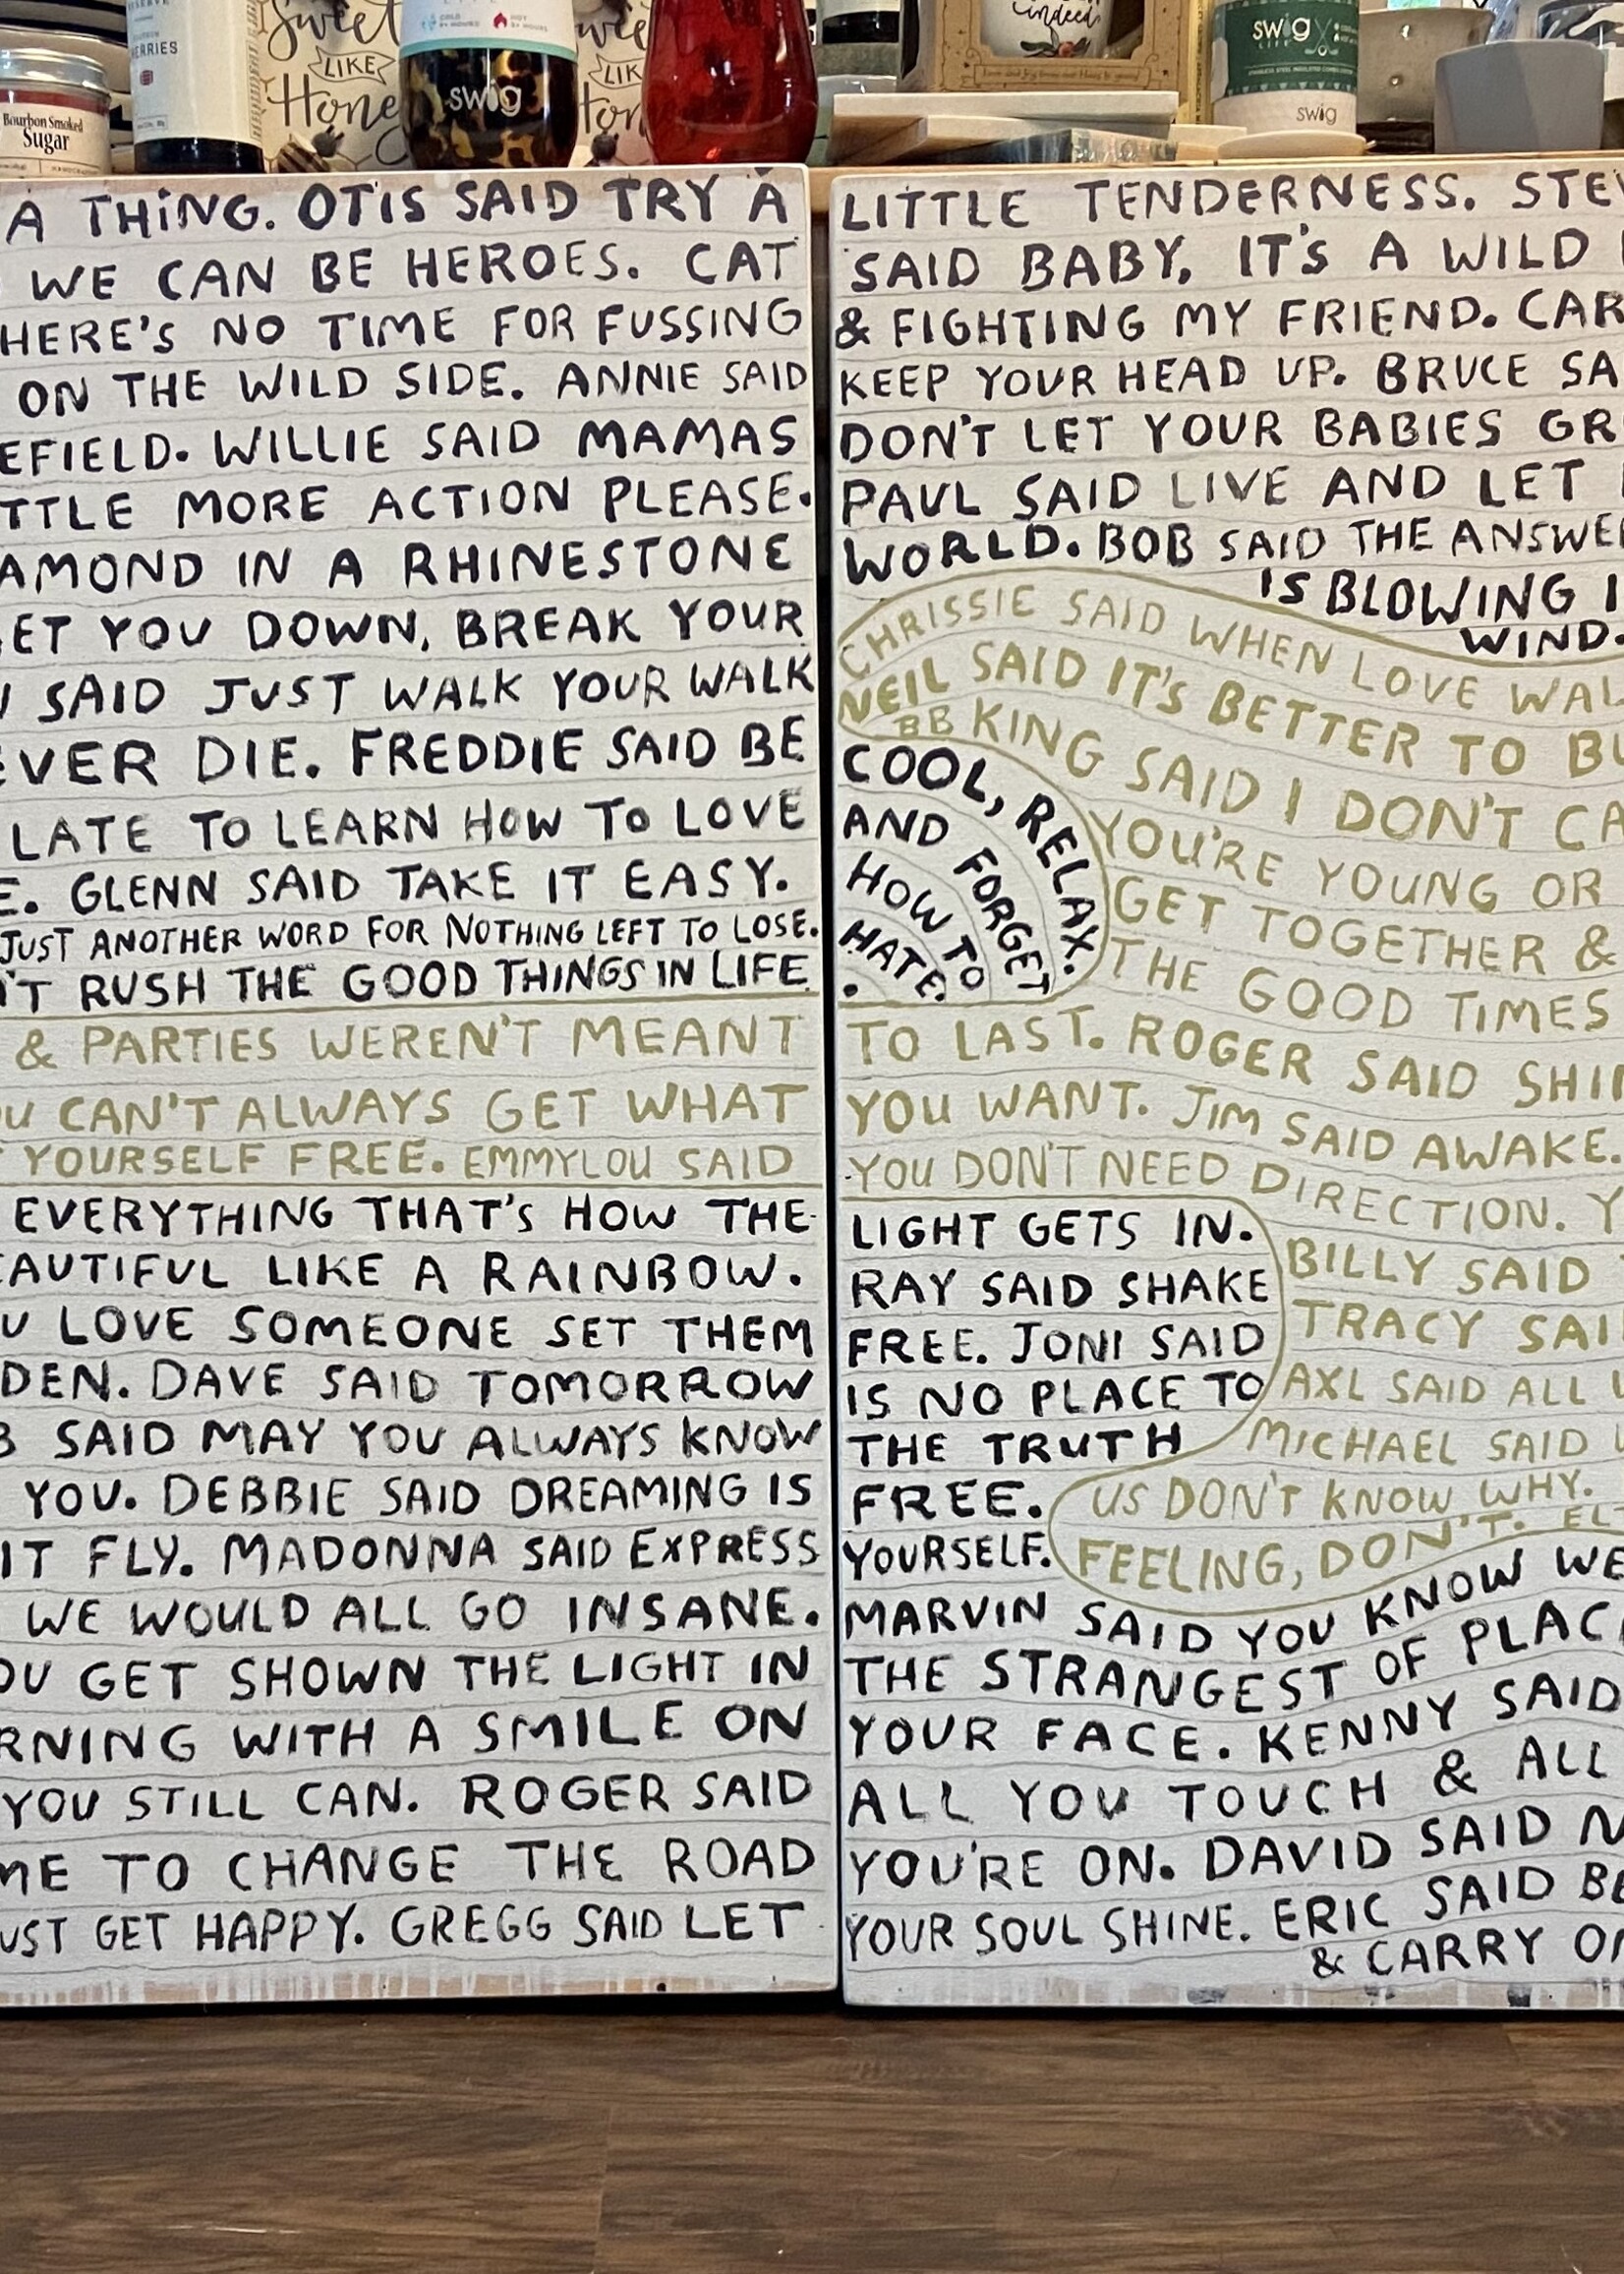 Sweet
LIKE
Honey
Bourbon Smoked
Sugar
swig
indeed
swig
swig
A THING. OTIS SAID TRY A
WE CAN BE HEROES. CAT
HERE'S NO TIME FOR FUSSING
ON THE WILD SIDE. ANNIE SAID
EFIELD. WILLIE SAID MAMAS
TTLE MORE ACTION PLEASE.
AMOND IN A RHINESTONE
LET YOU DOWN, BREAK YOUR
SAID JUST WALK YOUR WALK
EVER DIE. FREDDIE SAID BE
LATE TO LEARN HOW TO LOVE
E. GLENN SAID TAKE IT EASY.
JUST ANOTHER WORD FOR NOTHING LEFT TO LOSE.
'T RUSH THE GOOD THINGS IN LIFE
& PARTIES WEREN'T MEANT
OU CAN'T ALWAYS GET WHAT
YOURSELF FREE. EMMYLOU SAID
EVERYTHING THAT'S HOW THE
EAUTIFUL LIKE A RAINBOW.
U LOVE SOMEONE SET THEM
DEN. DAVE SAID TOMORROW
B SAID MAY YOU ALWAYS KNOW
YOU. DEBBIE SAID DREAMING IS
IT FLY. MADONNA SAID EXPRESS
WE WOULD ALL GO INSANE.
OU GET SHOWN THE LIGHT IN
RNING WITH A SMILE ON
YOU STILL CAN. ROGER SAID
ME TO CHANGE THE ROAD
UST GET HAPPY. GREGG SAID LET
LITTLE TENDERNESS. STE
SAID BABY, IT'S A WILD
& FIGHTING MY FRIEND. CAR
KEEP YOUR HEAD UP. BRUCE SA
DON'T LET YOUR BABIES GR
PAUL SAID LIVE AND LET
WORLD. BOB SAID THE ANSWE
IS BLOWING I
WIND.
CHRISSIE SAID WHEN LOVE WAL
NEIL SAID IT'S BETTER TO BU
BB KING SAID I DON'T CA
YOU'RE YOUNG OR
GET TOGETHER &
THE GOOD TIMES
COOL, RELAX.
AND FORGET
HOW TO
HATE.
TO LAST. ROGER SAID SHI
YOU WANT. JIM SAID AWAKE.
YOU DON'T NEED DIRECTION. Y
LIGHT GETS IN.
RAY SAID SHAKE
FREE. JONI SAID
IS NO PLACE TO
THE TRUTH
FREE.
YOURSELF.
BILLY SAID
TRACY SAI
AXL SAID ALL
MICHAEL SAID
US DON'T KNOW WHY.
FEELING, DON'T. EL
MARVIN SAID YOU KNOW WE
THE STRANGEST OF PLAC
YOUR FACE. KENNY SAID
ALL YOU TOUCH & ALL
YOU'RE ON. DAVID SAID N
YOUR SOUL SHINE. ERIC SAID BE
& CARRY ON